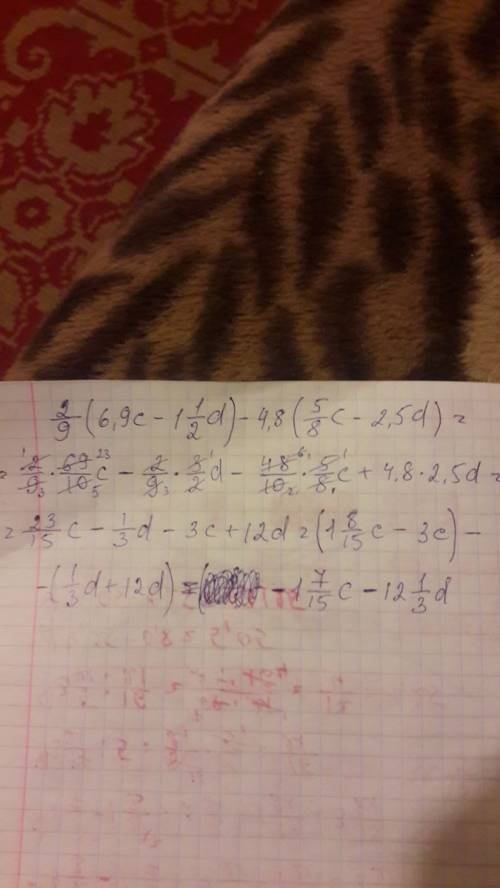 2/9 (6,9c - 1 1/2 d) - 4,8 (5/8 c - 2,5d) =
= 2/9 · 69/10 c - 2/9 · 3/2 d - 48/10 · 5/8 c + 4,8 · 2,5d =
= 23/15 c - 1/3 d - 3c + 12d = (1 8/15 c - 3c) -
- (1/3 d + 12d) = - 1 7/15 c - 12 1/3 d